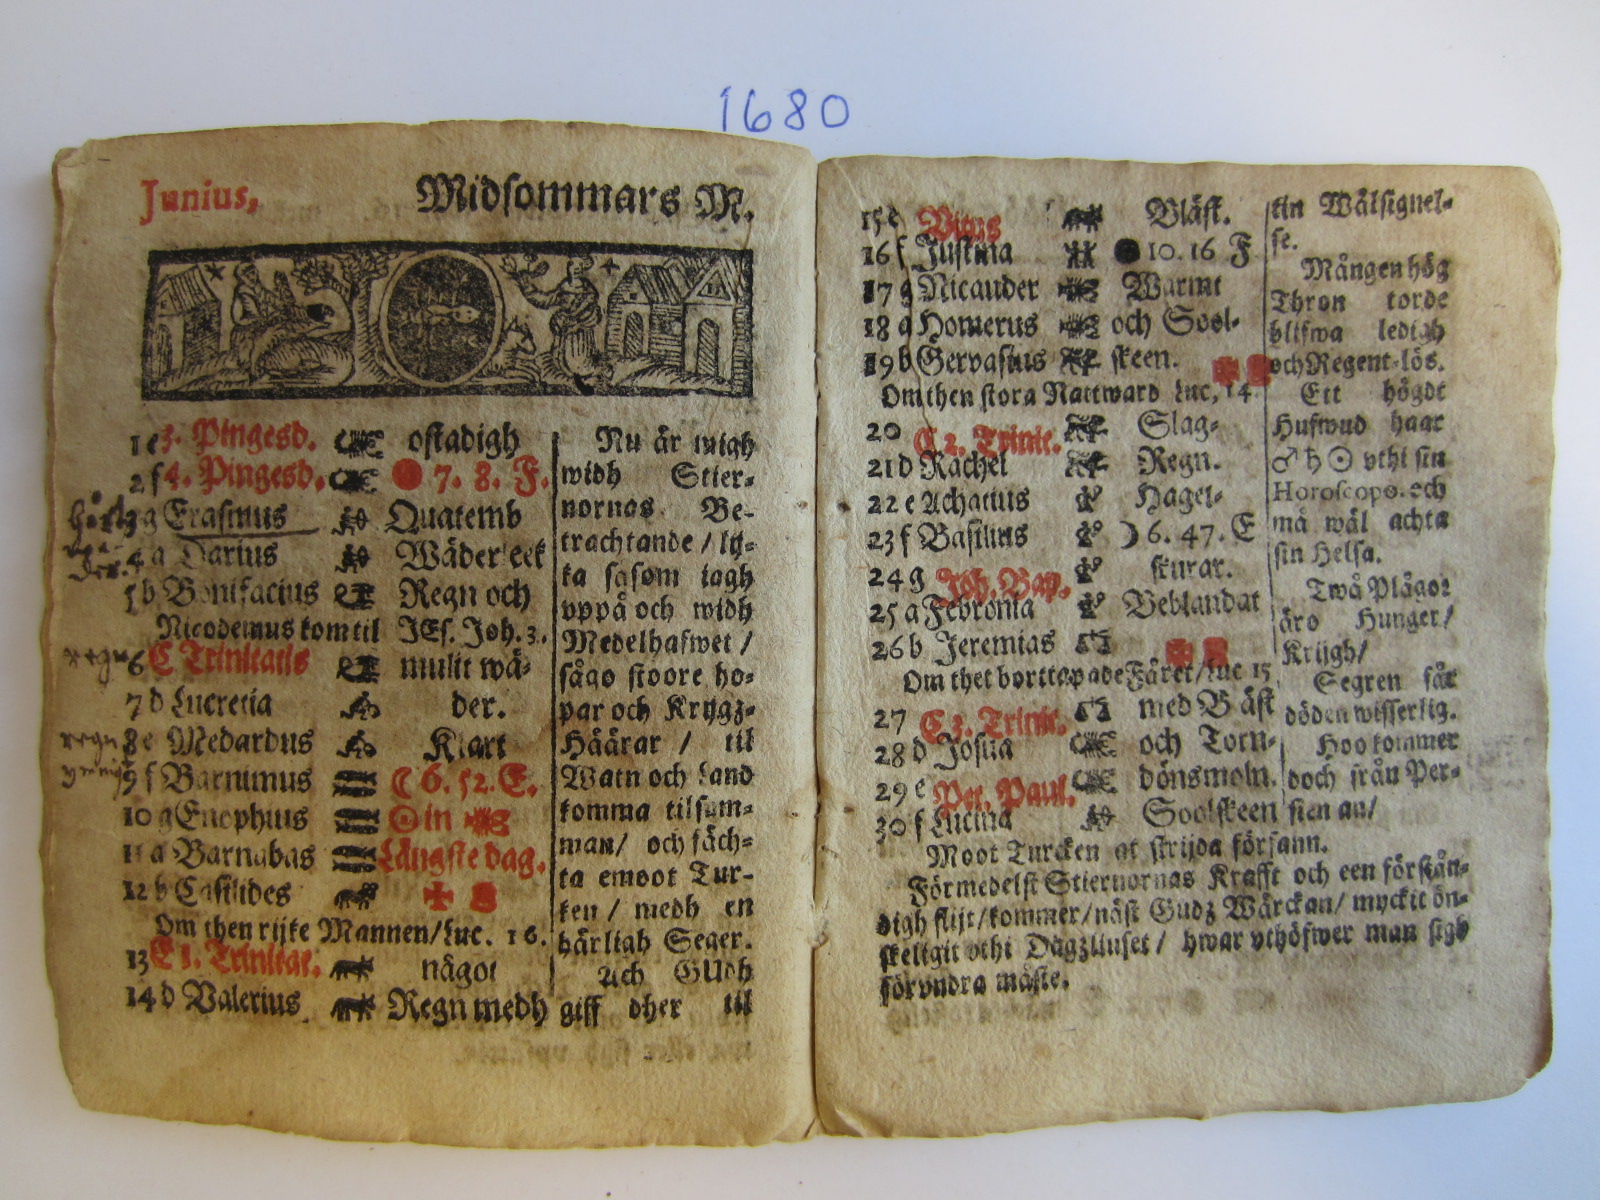 1680
Junius, Midsommars M.
1 e 3. Pingesd. ostadigh
2 f 4. Pingesd. 7. 8. F.
3 g Erasmus Quatemb
4 a Darius Wäderleek
5 b Bonifacius Regn och
Nicodemus kom til JEs. Joh. 3.
regn 6 C Trinitatis mulit wä-
7 d Lucretia der.
regn 8 e Medardus Klart
9 f Barnimus ☾ 6. 52. E.
10 g Enophius ☉ in
11 a Barnabas Längste dag.
12 b Casilides
Om then rijke Mannen/Luc. 16.
13 C 1. Trinitat. något
14 d Valerius Regn medh
Nu är migh
widh Stier-
nornas Be-
trachtande / lij-
ka såsom iagh
vppå och widh
Medelhafwet /
sågo stoore ho-
par och Krygz-
Häärar / til
Watn och Land
komma tilsam-
man/ och fäch-
ta emoot Tur-
ken / medh en
härligh Seger.
Ach GUdh
giff dher til
15 c Vitus Bläst.
16 f Justina ● 10. 16 F
17 g Nicander Warmt
18 a Homerus och Sool-
19 b Gervasius skeen.
Om then stora Nattward Luc, 14
20 C 2. Trinit. Slag-
21 d Rachel Regn.
22 e Achatius Hagel-
23 f Basilius ☽ 6. 47. E
24 g Joh. Bap. skurar.
25 a Febronia Beblandat
26 b Jeremias
Om thet borttapade Fåret/Luc 15
27 C 3. Trinit. med Bläst
28 d Josua och Torn-
29 e Pet. Paul. dönsmoln.
30 f Lucina Soolskeen
tin Wälsignel-
se.
Mången hög
Thron torde
blifwa ledigh
och Regent-lös.
Ett högdt
Hufwud haar
♂ ♄ ☉ vthi sin
Horoscopo. och
må wäl achta
sin Helsa.
Twå Plågor
äro Hunger/
Krijgh/
Segren får
döden wisserlig.
Hoo kommer
doch från Per-
sien an/
Moot Turcken at strijda försann.
Förmedelst Stiernornas Krafft och een förstån-
digh flijt/kommer/näst Gudz Wärckan/ myckit ön-
skeligit vthi Dagzliuset / hwar vthöfwer man sigh
förvndra måste.